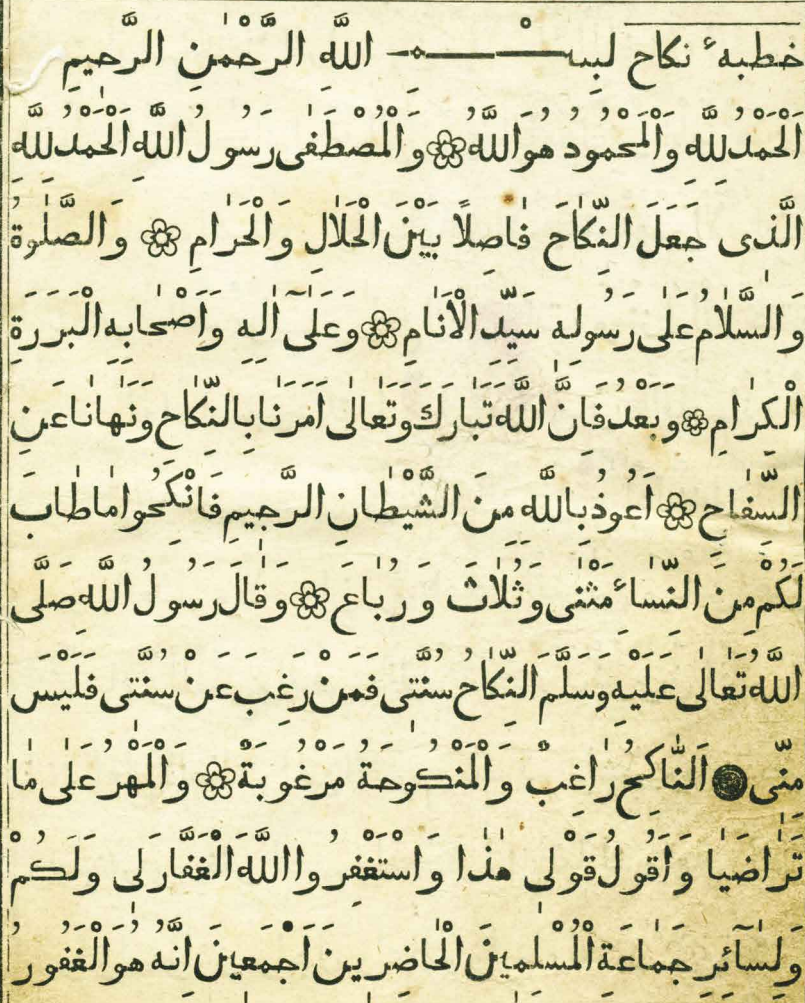 خطبهٔ نكاح لبسم اللّٰه الرَّحْمٰنِ الرَّحيمِ
اَلْحَمْدُ لِلّٰهِ وَالْمَحْمُودُ هُوَ اللّٰهُ ۞ وَالْمُصْطَفٰى رَسُولُ اللّٰهِ اَلْحَمْدُ لِلّٰهِ
الَّذى جَعَلَ النِّكَاحَ فَاصِلاً بَيْنَ الْحَلَالِ وَالْحَرَامِ ۞ وَالصَّلٰوةُ
وَالسَّلَامُ عَلٰى رَسُولِهِ سَيِّدِ الْاَنَامِ ۞ وَعَلٰى اٰلِهِ وَاَصْحَابِهِ الْبَرَرَةِ
الْكِرَامِ ۞ وَبَعْدُ فَاِنَّ اللّٰهَ تَبَارَكَ وَتَعَالٰى اَمَرَنَا بِالنِّكَاحِ وَنَهَانَا عَنِ
السِّفَاحِ ۞ اَعُوذُ بِاللّٰهِ مِنَ الشَّيْطَانِ الرَّجِيمِ فَانْكِحُوا مَا طَابَ
لَكُمْ مِنَ النِّسَاءِ مَثْنٰى وَثُلَاثَ وَرُبَاعَ ۞ وَقَالَ رَسُولُ اللّٰهِ صَلَّى
اللّٰهُ تَعَالٰى عَلَيْهِ وَسَلَّمَ النِّكَاحُ سُنَّتِى فَمَنْ رَغِبَ عَنْ سُنَّتِى فَلَيْسَ
مِنِّى ● اَلنَّاكِحُ رَاغِبٌ وَالْمَنْكُوحَةُ مَرْغُوبَةٌ ۞ وَالْمَهْرُ عَلٰى مَا
تَرَاضَيَا وَاَقُولُ قَوْلِى هٰذَا وَاسْتَغْفِرُوا اللّٰهَ الْغَفَّارَ لِى وَلَكُمْ
وَلِسَآئِرِ جَمَاعَةِ الْمُسْلِمِينَ الْحَاضِرِينَ اَجْمَعِينَ اِنَّهُ هُوَ الْغَفُورُ